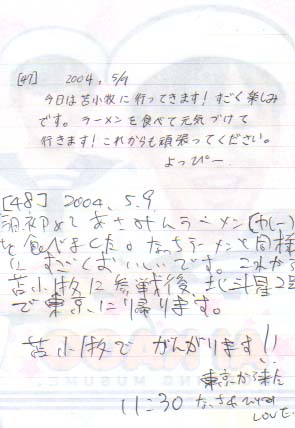 [47] 2004. 5/9
今日は苫小牧に行ってきます！すごく楽しみ
です。ラーメンを食べて元気づけて
行きます！これからも頑張ってください。
よっぴー
[48] 2004. 5. 9
初めて あさみんラーメン(カレー)
を食べました。なっちラーメンと同様
に すごくおいしいです。これから
苫小牧に参戦後、北斗星2号
で東京に帰ります。
苫小牧で がんがります！！
東京から来た
11:30
LOVE
MUSUME.